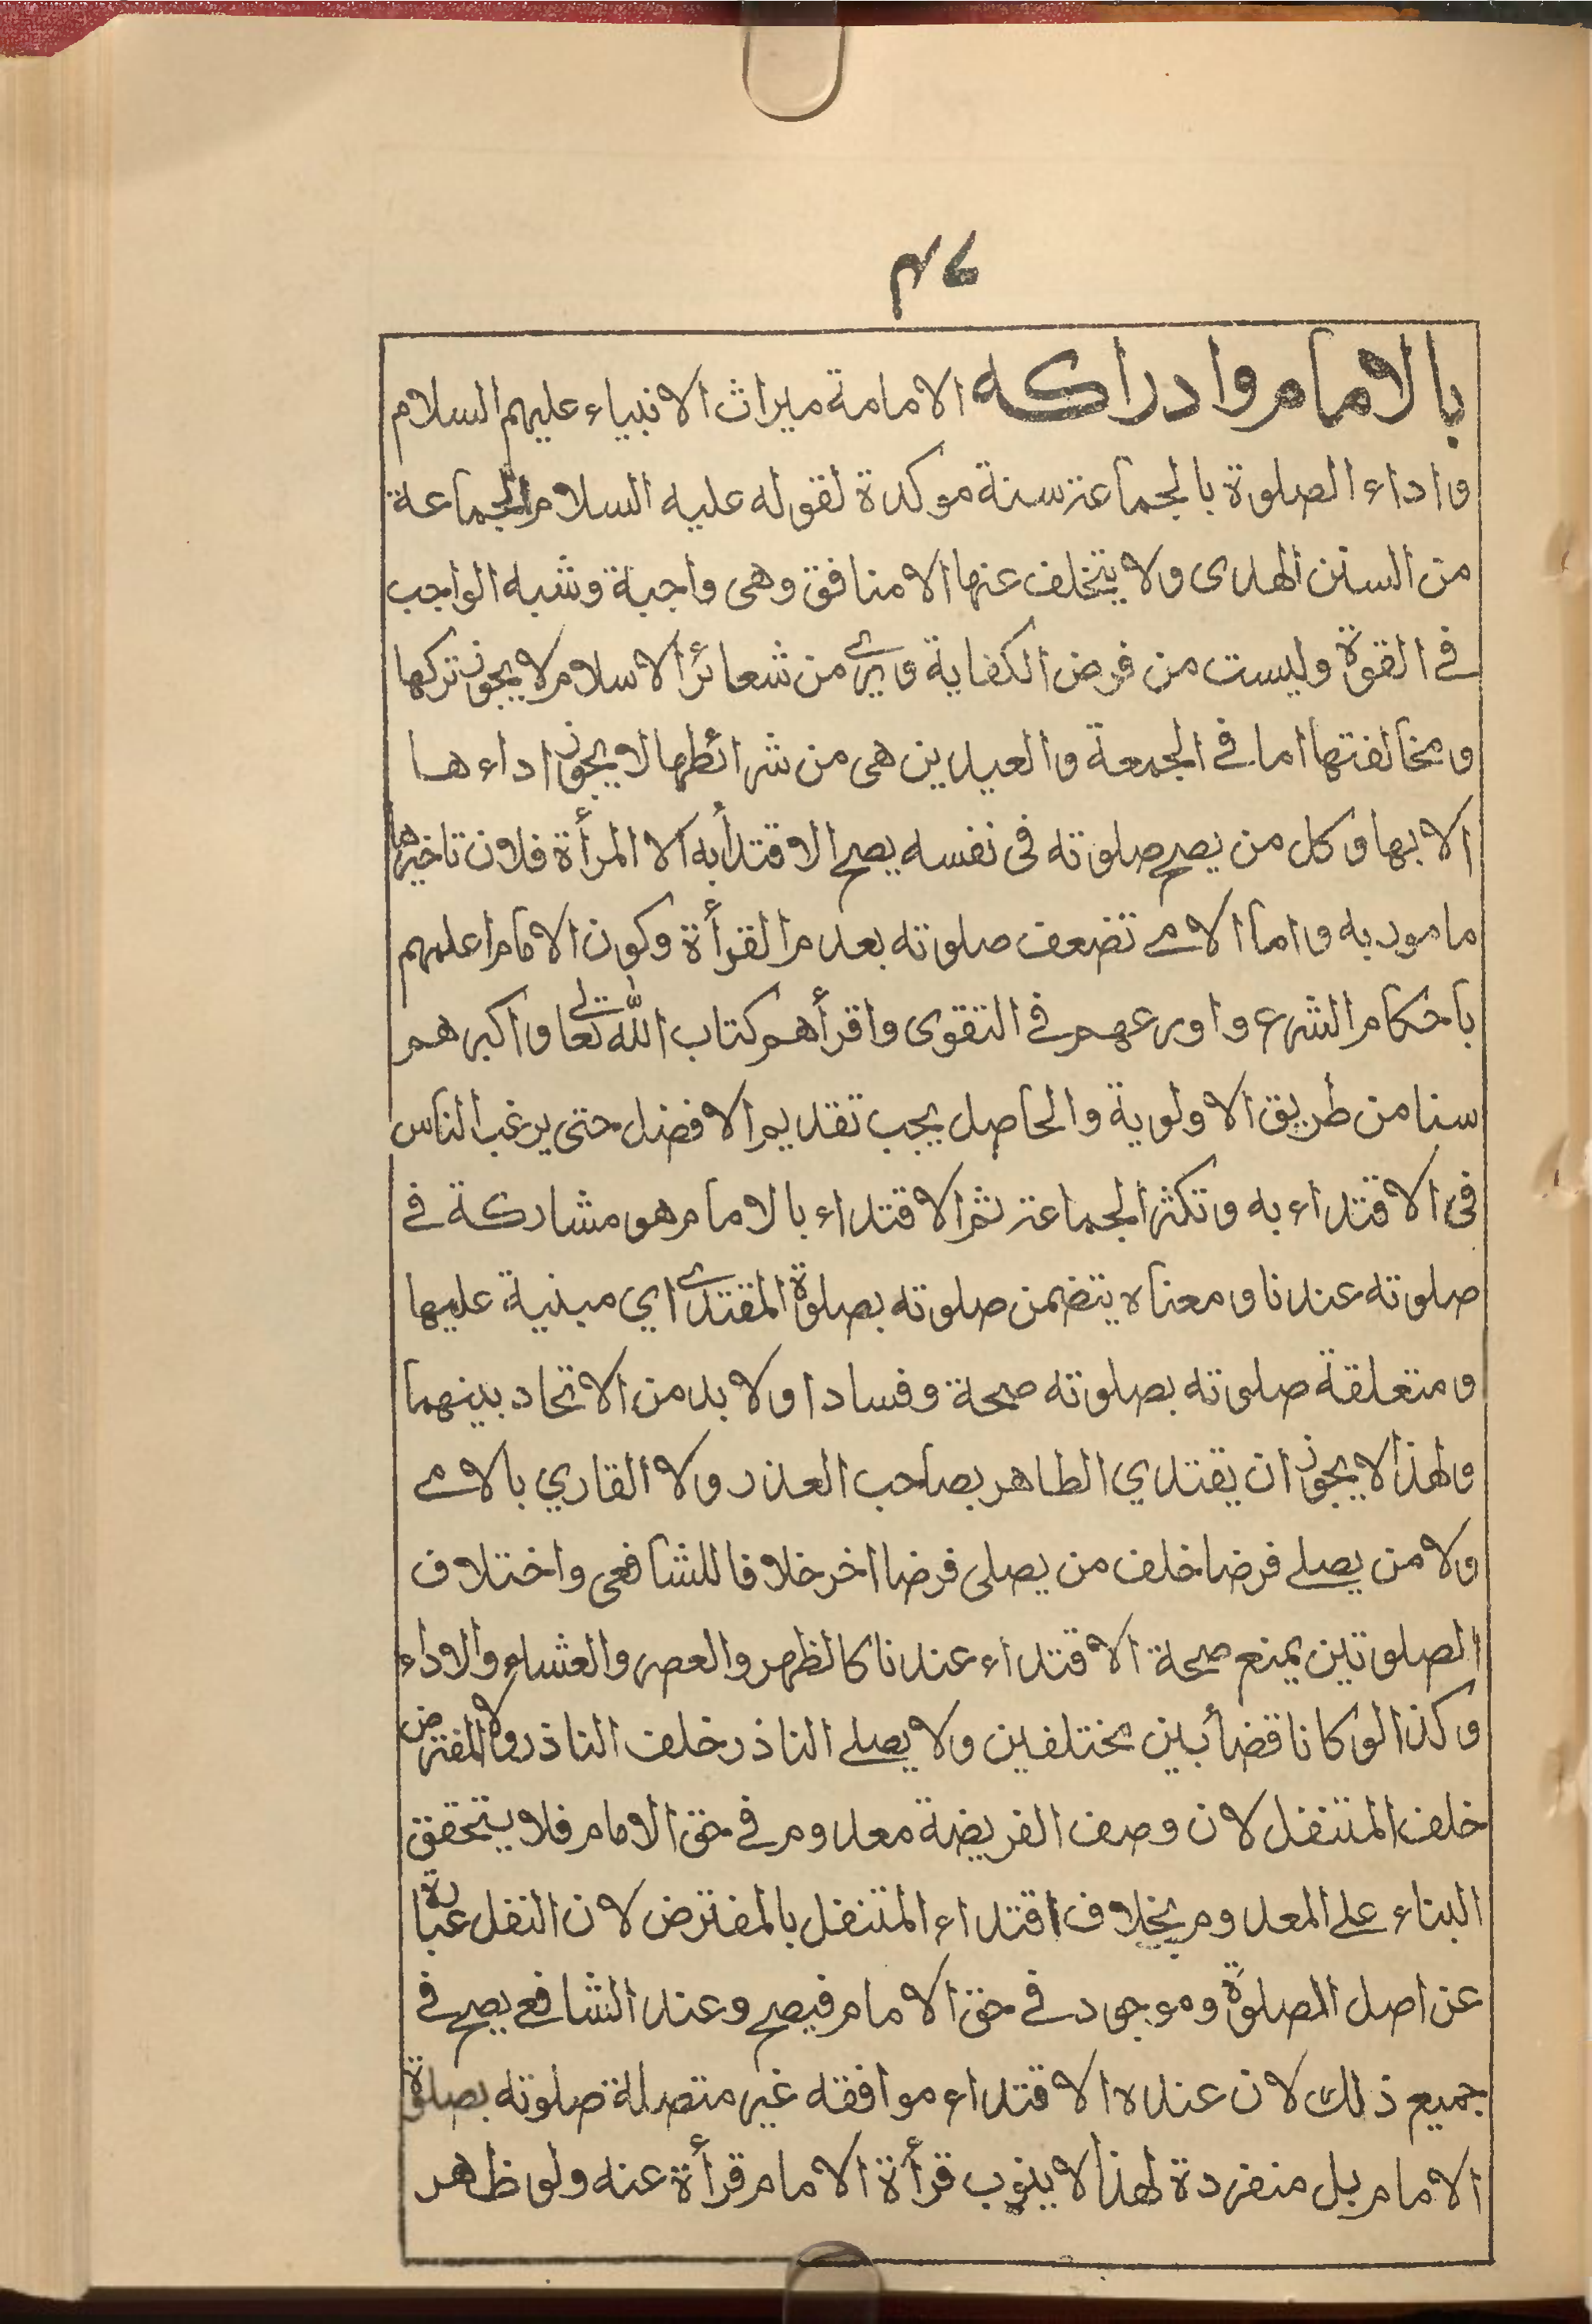 ٤٧
بالامام وادراكه الامامة ميراث الانبياء عليهم السلام
واداء الصلوة بالجماعة سنة موكدة لقوله عليه السلام الجماعة
من السنن الهدى ولا يتخلف عنها الا منافق وهى واجبة وشبه الواجب
في القوة وليست من فرض الكفاية ويرى من شعائر الاسلام لا يجوز تركها
ومخالفتها اما في الجمعة والعيدين هى من شرائطها لا يجوز اداءها
الا بها وكل من يصح صلوته فى نفسه يصح الاقتدأ به الا المرأة فلان تاخيرها
مامور به واما الامي تضعف صلوته بعدم القرأة وكون الامام اعلمهم
باحكام الشرع واورعهم في التقوى واقرأهم كتاب الله تعالى واكبرهم
سنا من طريق الاولوية والحاصل يجب تقديم الافضل حتى يرغب الناس
فى الاقتداء به وتكثر الجماعة ثم الاقتداء بالامام هو مشاركة في
صلوته عندنا ومعناه يتضمن صلوته بصلوة المقتدى اي مبنية عليها
ومتعلقة صلوته بصلوته صحة وفسادا ولا بد من الاتحاد بينهما
ولهذا لا يجوز ان يقتدي الطاهر بصاحب العذر ولا القاري بالامي
ولا من يصلي فرضا خلف من يصلى فرضا اخر خلافا للشافعى واختلاف
الصلوتين يمنع صحة الاقتداء عندنا كالظهر والعصر والعشاء والاداء
وكذا لو كانا قضأبين مختلفين ولا يصلي الناذر خلف الناذر ولا المفترض
خلف المتنفل لان وصف الفريضة معدوم في حق الامام فلا يتحقق
البناء علي المعدوم بخلاف اقتداء المتنفل بالمفترض لان النفل عبارة
عن اصل الصلوة وموجود في حق الامام فيصح وعند الشافعي يصح في
جميع ذلك لان عنده الاقتداء موافقه غير متصلة صلوته بصلوة
الامام بل منفردة لهذا لا ينوب قرأة الامام قرأة عنه ولو ظاهر